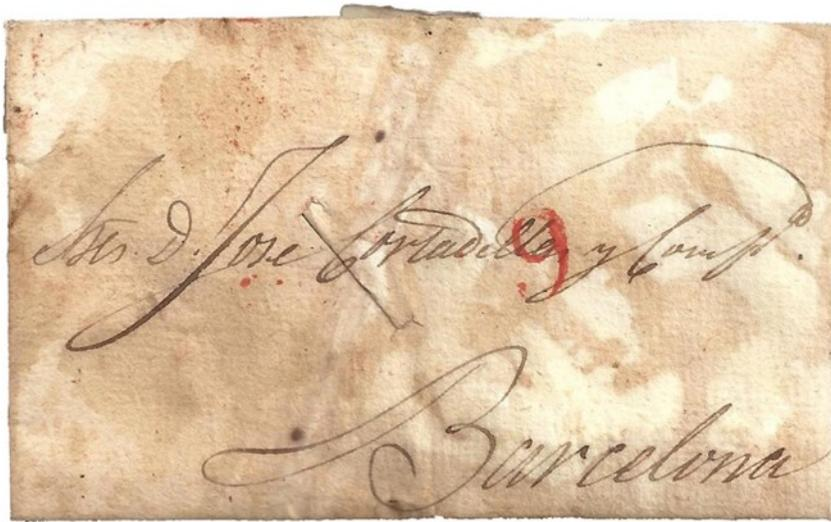 Sres. D. Jose Cortadella y Comp.ª
9
Barcelona